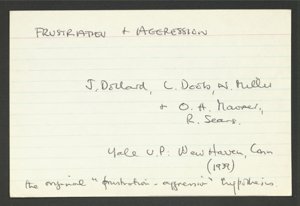 FRUSTRATION + AGGRESSION
J. Dollard, C. Doob, N. Miller
+ O. H. Mowrer,
R. Sears.
Yale U.P: New Haven, Conn
(1939)
the original "frustration-aggression" hypothesis